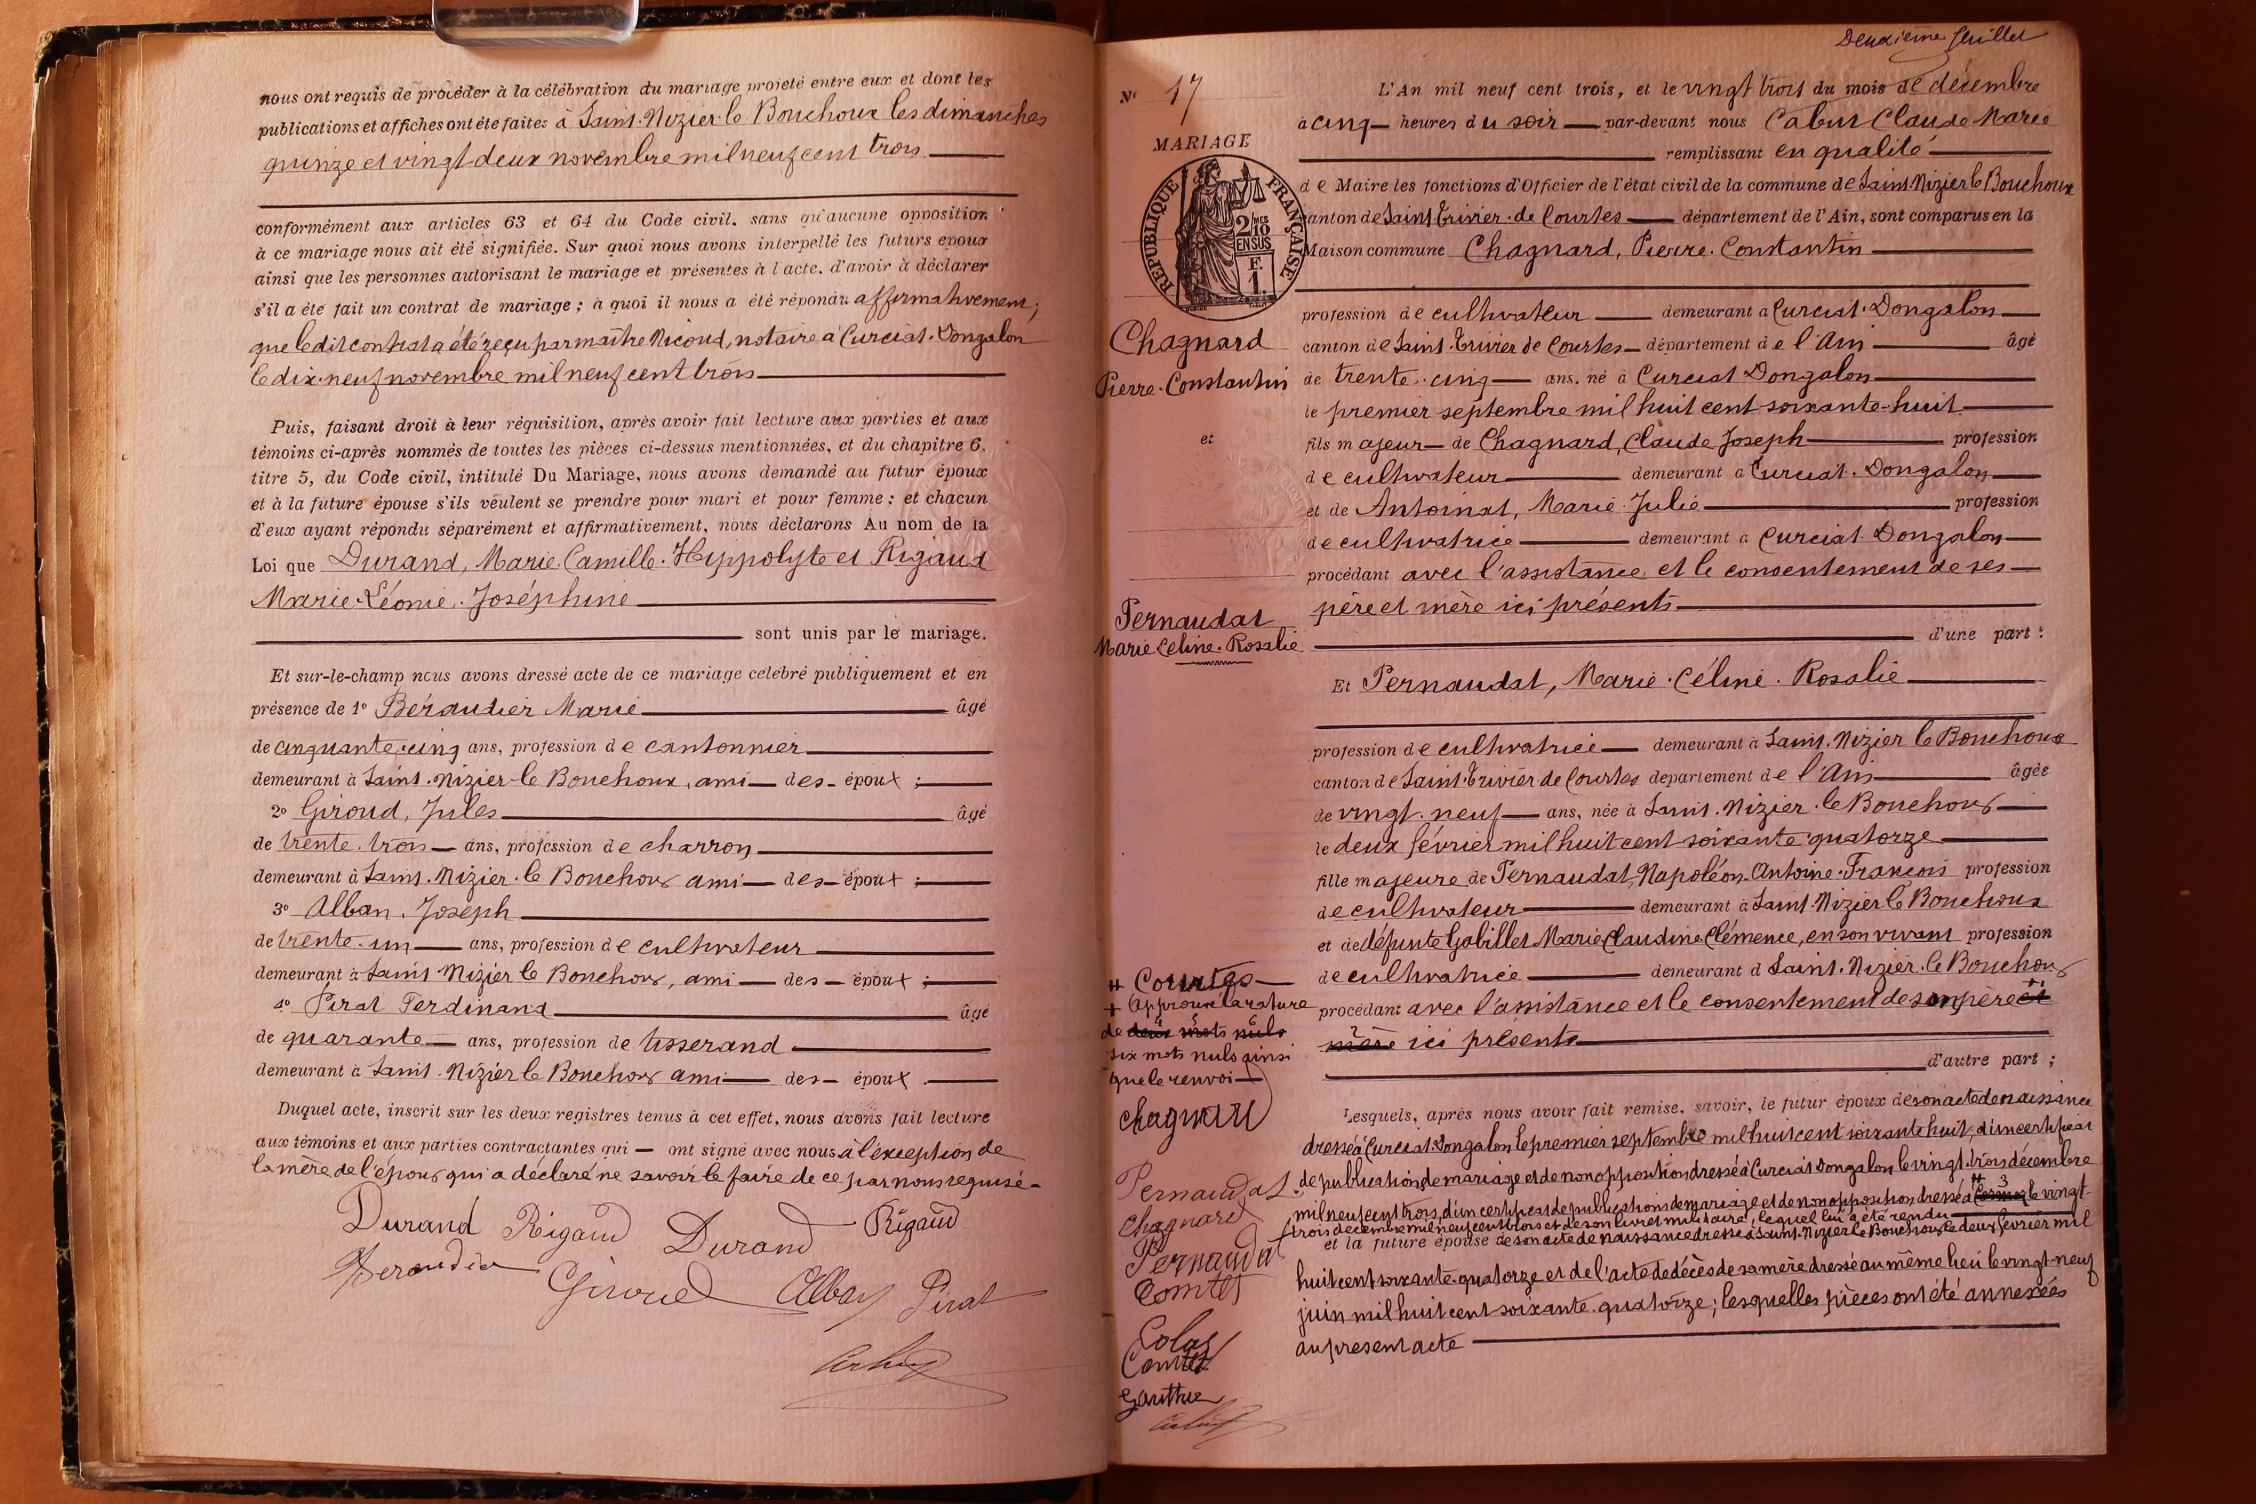 nous ont requis de procéder à la célébration du mariage projeté entre eux et dont les
publications et affiches ont été faites à Saint-Nizier-le Bouchoux les dimanches
quinze et vingt-deux novembre mil neuf cent trois
conformément aux articles 63 et 64 du Code civil, sans qu'aucune opposition
à ce mariage nous ait été signifiée. Sur quoi nous avons interpellé les futurs époux
ainsi que les personnes autorisant le mariage et présentes à l'acte, d'avoir à déclarer
s'il a été fait un contrat de mariage ; à quoi il nous a été répondu affirmativement ;
que ledit contrat a été reçu par maître Nicoud, notaire à Curciat-Dongalon
le dix-neuf novembre mil neuf cent trois
Puis, faisant droit à leur réquisition, après avoir fait lecture aux parties et aux
témoins ci-après nommés de toutes les pièces ci-dessus mentionnées, et du chapitre 6,
titre 5, du Code civil, intitulé Du Mariage, nous avons demandé au futur époux
et à la future épouse s'ils veulent se prendre pour mari et pour femme ; et chacun
d'eux ayant répondu séparément et affirmativement, nous déclarons Au nom de la
Loi que Durand, Marie-Camille-Hyppolyte et Rigaud
Marie-Léonie-Joséphine
sont unis par le mariage.
Et sur-le-champ nous avons dressé acte de ce mariage célébré publiquement et en
présence de 1° Béraudier Marie âgé
de cinquante-cinq ans, profession de cantonnier
demeurant à Saint-Nizier-le Bouchoux, ami des époux ;
2° Giroud, Jules âgé
de trente-trois ans, profession de charron
demeurant à Saint-Nizier-le Bouchoux ami des époux ;
3° Alban, Joseph
de trente-un ans, profession de cultivateur
demeurant à Saint Nizier le Bouchoux, ami des époux ;
4° Pirat Ferdinand âgé
de quarante ans, profession de tisserand
demeurant à Saint-Nizier le Bouchoux ami des époux.
Duquel acte, inscrit sur les deux registres tenus à cet effet, nous avons fait lecture
aux témoins et aux parties contractantes qui ont signé avec nous à l'exception de
la mère de l'époux qui a déclaré ne savoir le faire de ce par nous requise
Durand Rigaud Durand Rigaud
Beraudier Giroud Alban Pirat
Deuxième feuillet
N° 17
MARIAGE
RÉPUBLIQUE FRANÇAISE
2/10 EN SUS
F. 1.
Chagnard
Pierre-Constantin
et
Pernaudat
Marie Céline-Rosalie
L'An mil neuf cent trois, et le vingt trois du mois de décembre
à cinq heures du soir par-devant nous Cabut Claude Marie
remplissant en qualité
de Maire les fonctions d'Officier de l'état civil de la commune de Saint-Nizier le Bouchoux
canton de Saint-Trivier-de Courtes département de l'Ain, sont comparus en la
Maison commune Chagnard, Pierre-Constantin
profession de cultivateur demeurant à Curciat-Dongalon
canton de Saint-Trivier de Courtes département de l'Ain âgé
de trente-cinq ans, né à Curciat Dongalon
le premier septembre mil huit cent soixante-huit
fils majeur de Chagnard, Claude Joseph profession
de cultivateur demeurant à Curciat-Dongalon
et de Antoinat, Marie-Julie profession
de cultivatrice demeurant à Curciat-Dongalon
procédant avec l'assistance et le consentement de ses
père et mère ici présents
d'une part :
Et Pernaudat, Marie-Céline-Rosalie
profession de cultivatrice demeurant à Saint-Nizier le Bouchoux
canton de Saint-Trivier de Courtes département de l'Ain âgée
de vingt-neuf ans, née à Saint-Nizier-le Bouchoux
le deux février mil huit cent soixante-quatorze
fille majeure de Pernaudat, Napoléon-Antoine-François profession
de cultivateur demeurant à Saint-Nizier le Bouchoux
et de défunte Gabillet Marie Claudine Clémence, en son vivant profession
de cultivatrice demeurant à Saint-Nizier-le Bouchoux
procédant avec l'assistance et le consentement de son père et
mère ici présents
d'autre part ;
Lesquels, après nous avoir fait remise, savoir, le futur époux de son acte de naissance
dressé à Curciat-Dongalon le premier septembre mil huit cent soixante huit, d'un certificat
de publication de mariage et de non opposition dressé à Curciat Dongalon le vingt-trois décembre
mil neuf cent trois, d'un certificat de publications de mariage et de non opposition dressé à le vingt-
trois décembre mil neuf cent trois et de son livret militaire, lequel lui a été rendu
et la future épouse de son acte de naissance dressé à Saint-Nizier le Bouchoux le deux février mil
huit cent soixante-quatorze et de l'acte de décès de sa mère dressé au même lieu le vingt-neuf
juin mil huit cent soixante-quatorze ; lesquelles pièces ont été annexées
au présent acte
Courtes
Approuvé la rature
de deux mots nuls
six mots nuls ainsi
que le renvoi
Chagnard
Pernaudat
Chagnard
Pernaudat
Comtet
Colas
Comtet
Gauthier